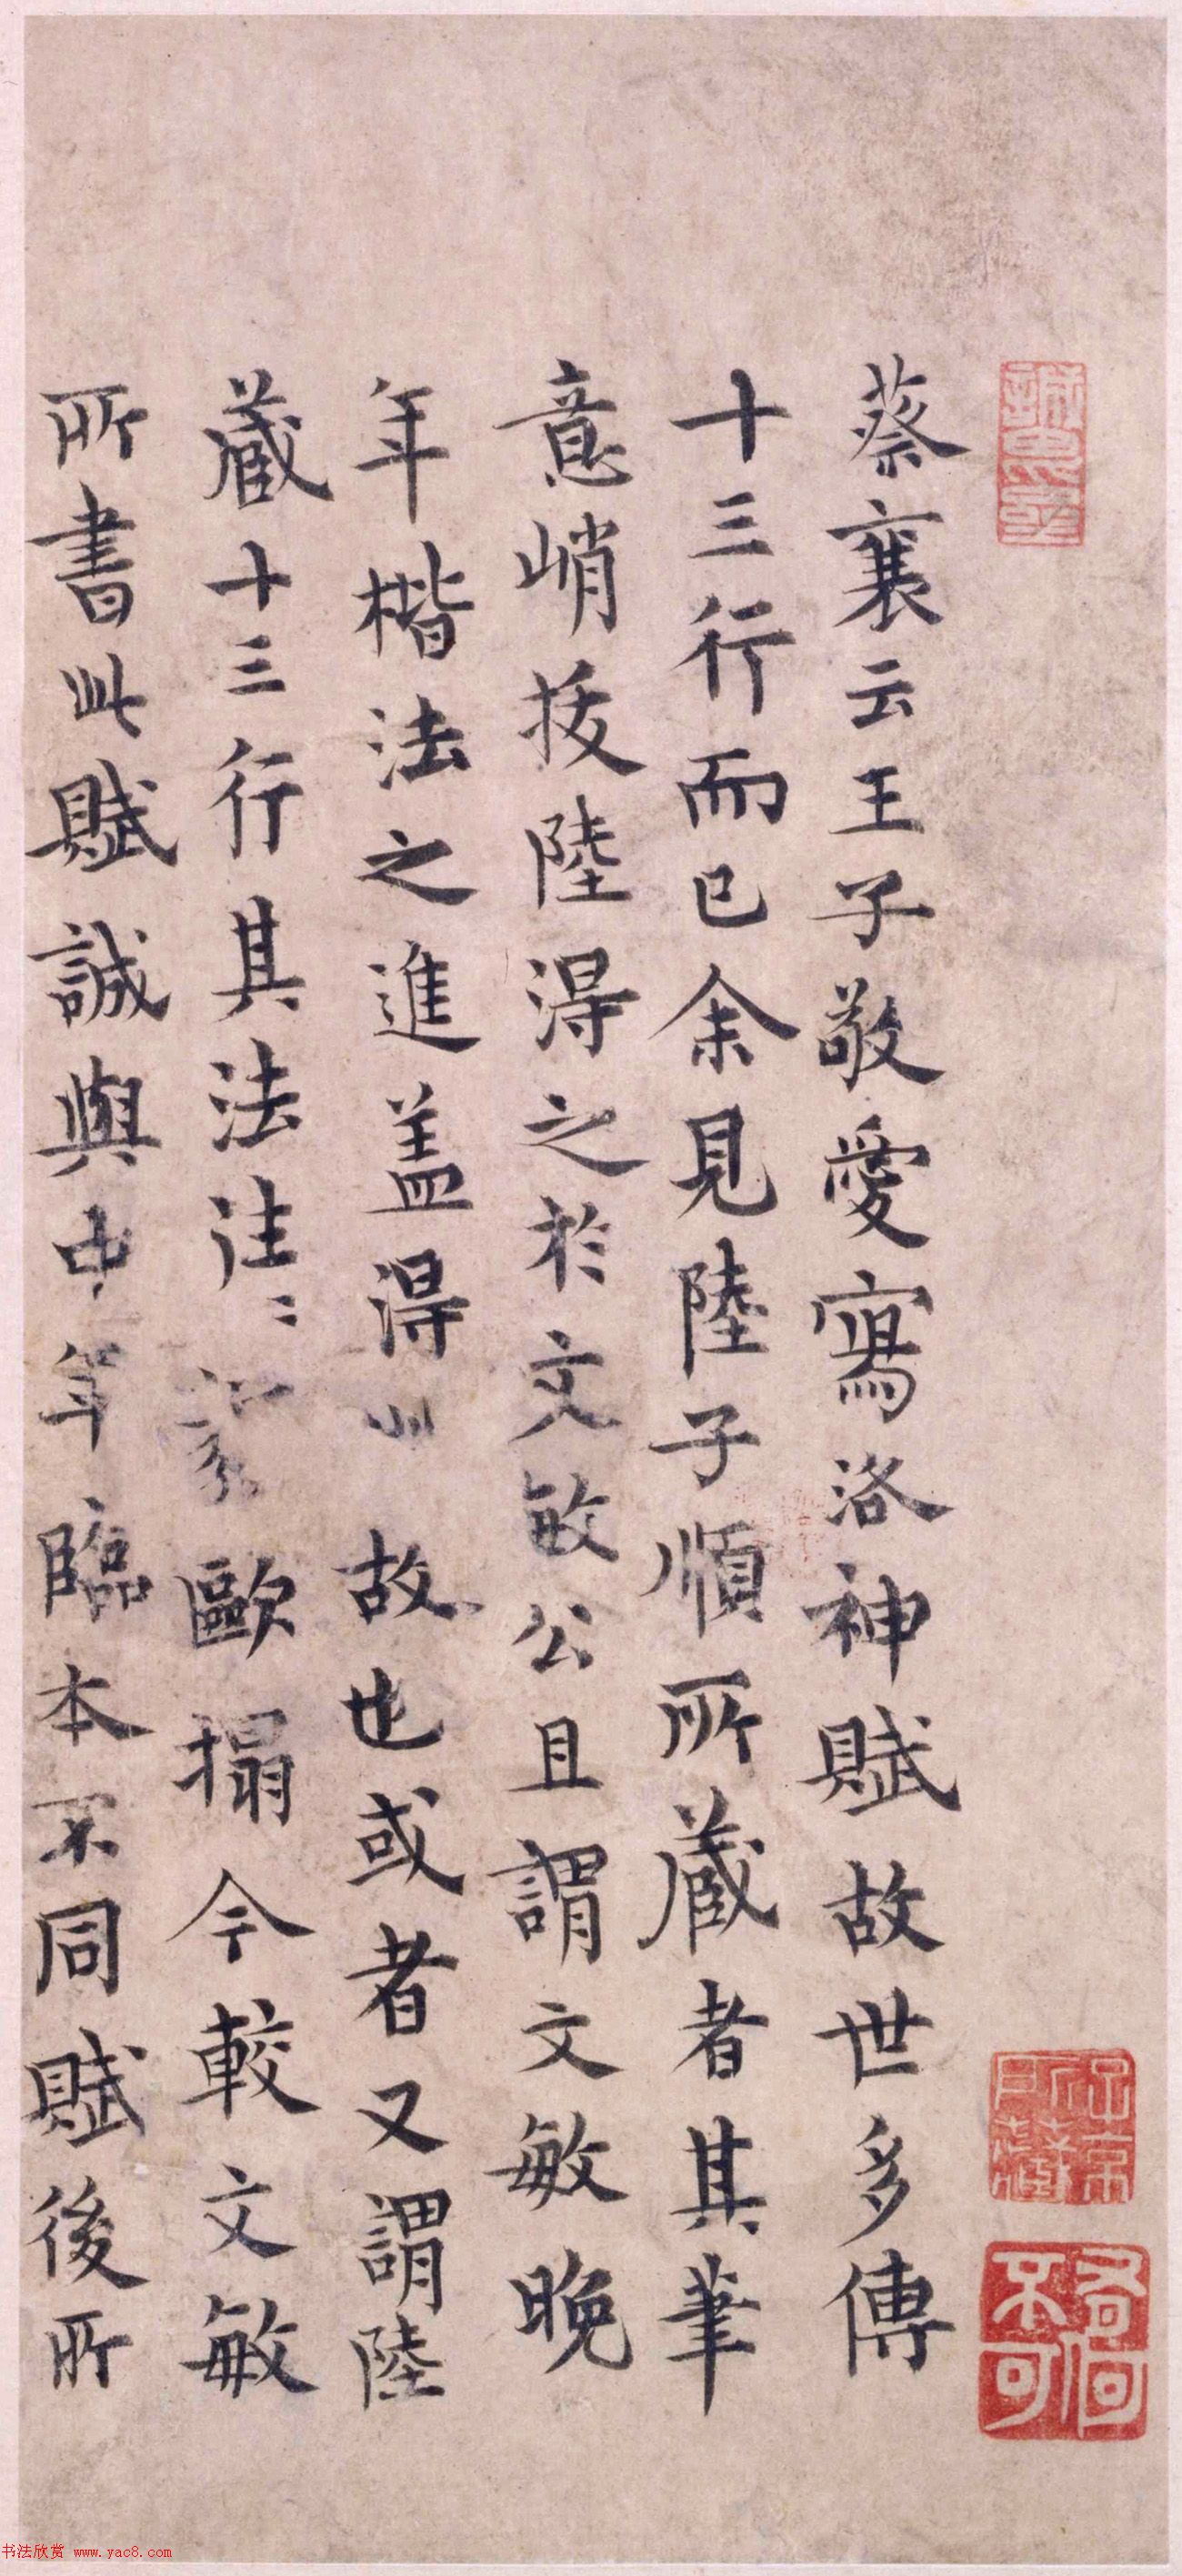 蔡襄云王子敬愛寫洛神賦故世多傳
十三行而已余見陸子順所藏者其筆
意峭拔陸得之於文敏公且謂文敏晚
年楷法之進蓋得 故也或者又謂陸
藏十三行其法往〻 歐搨今較文敏
所書此賦誠與中年臨本不同賦後所
书法欣赏 www.yac8.com